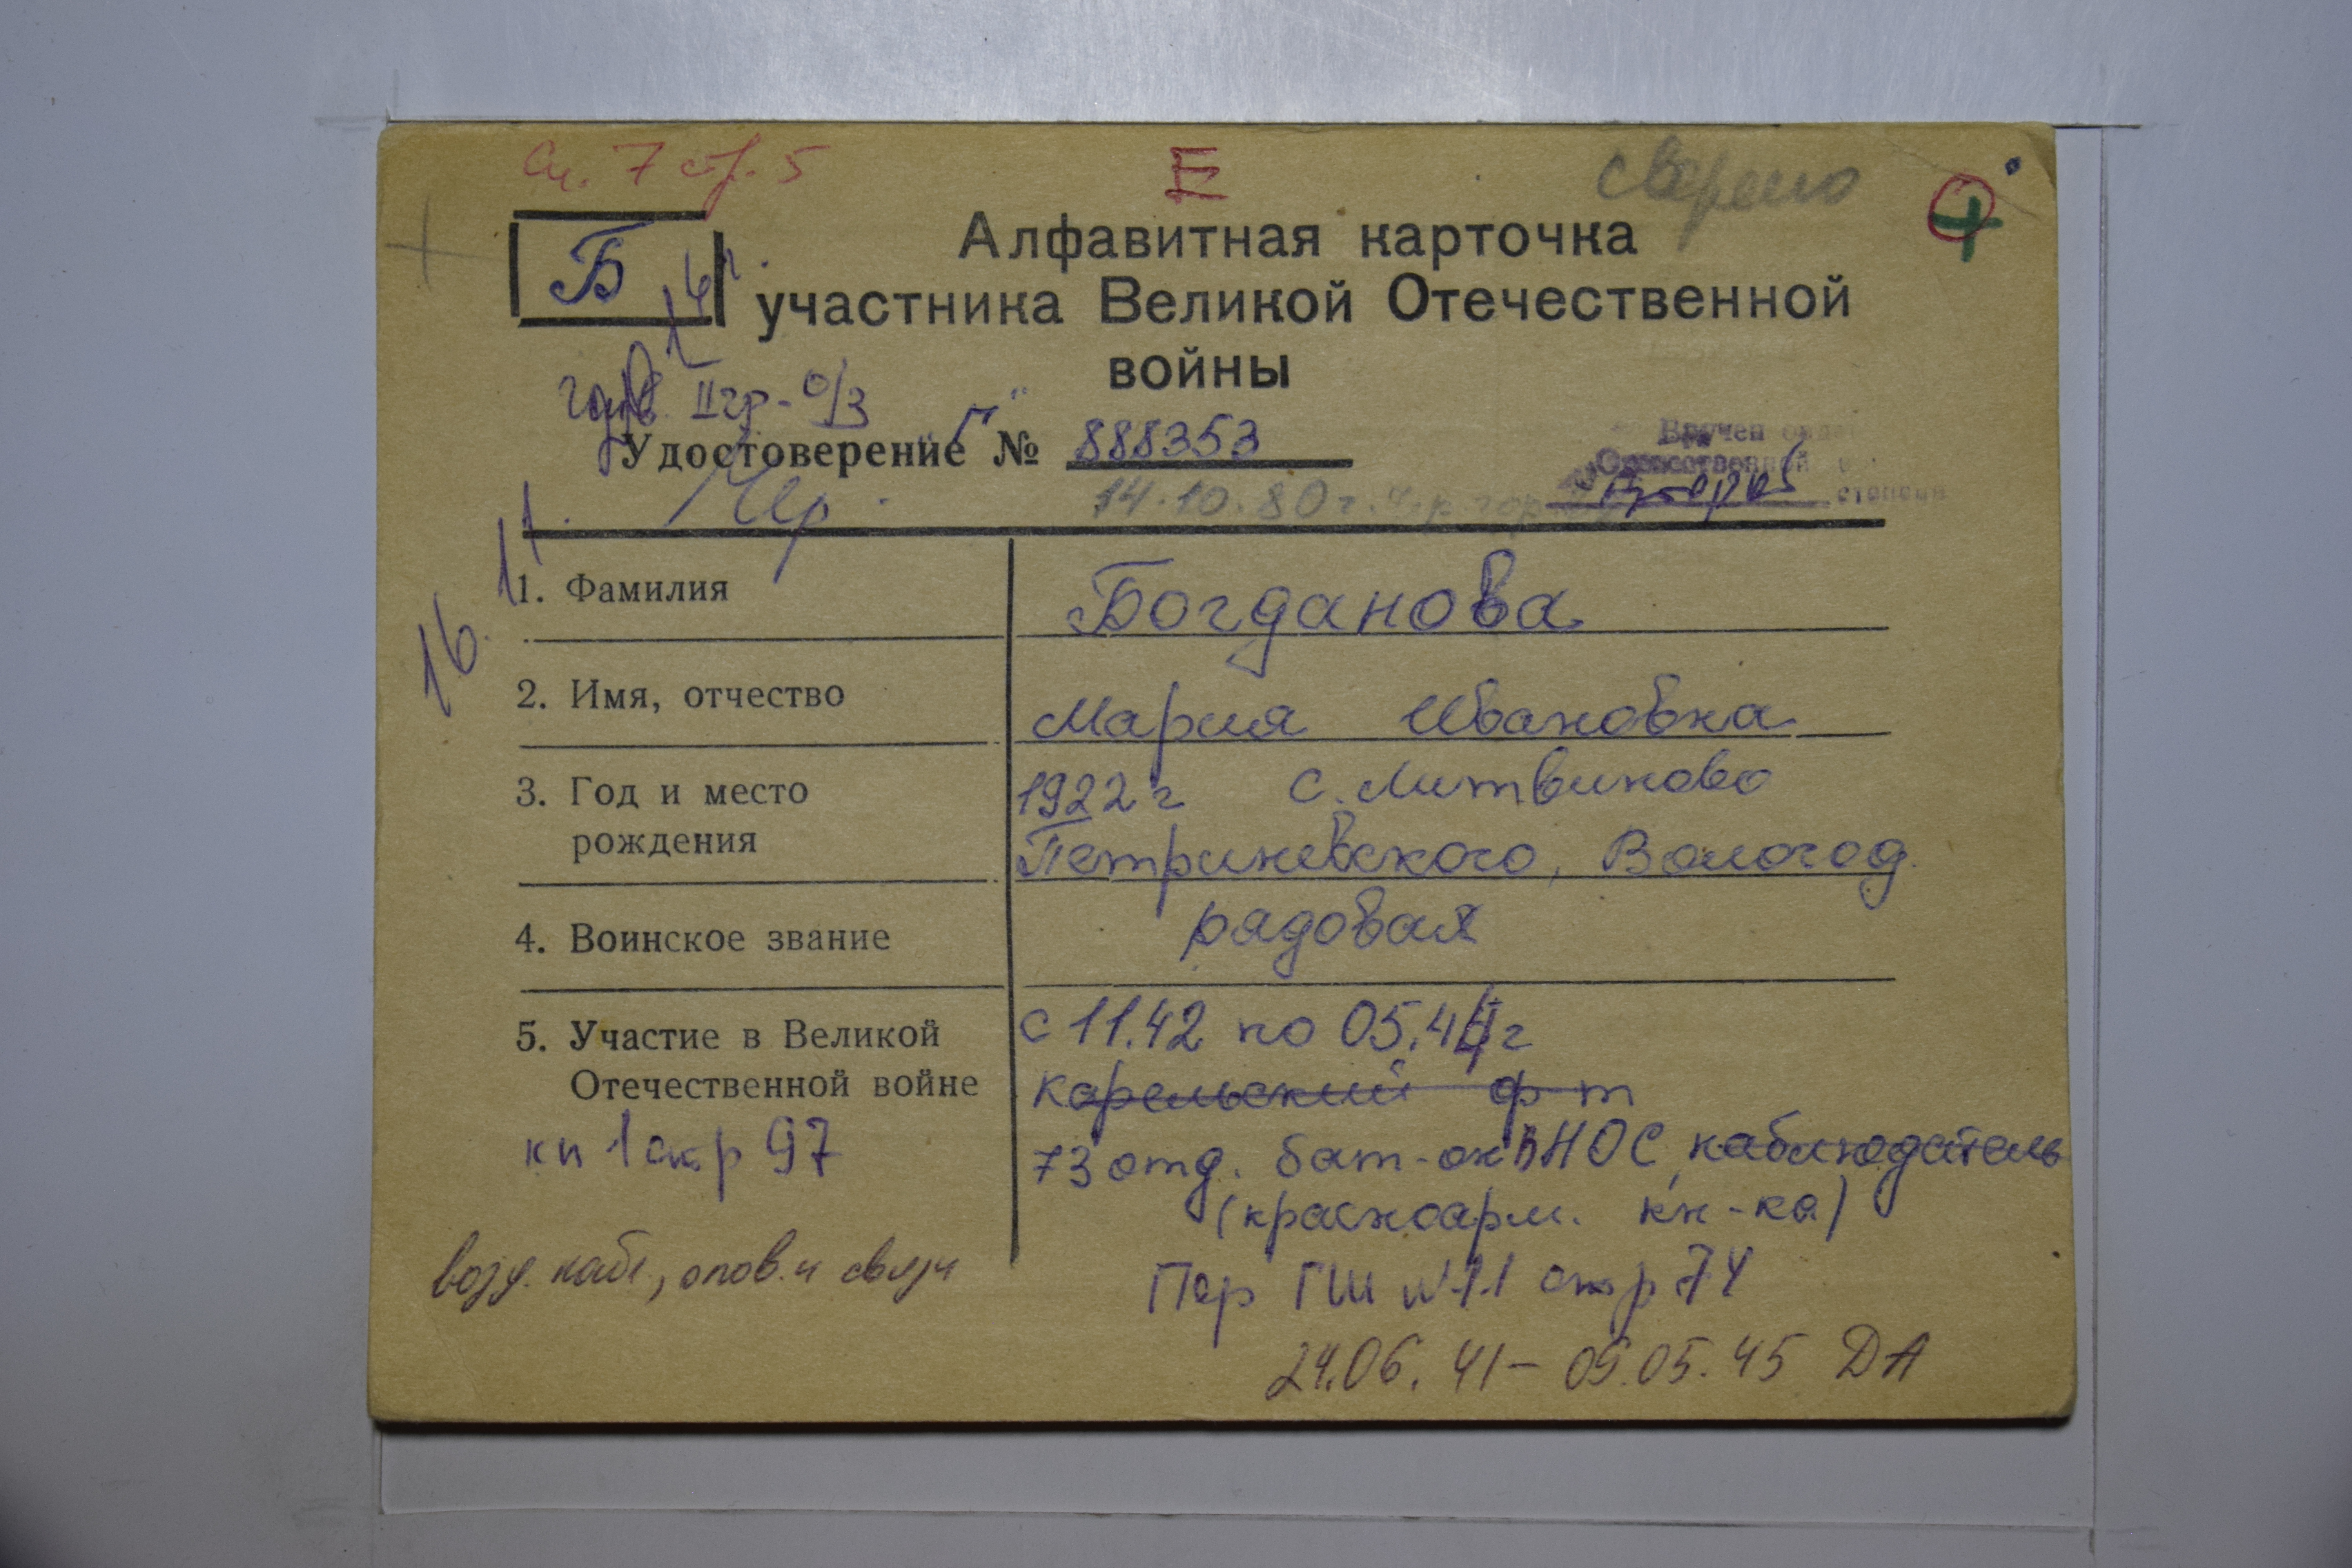 Сп. 7 стр. 5
Е
сверено
Б
Алфавитная карточка
участника Великой Отечественной
войны
II гр - о/з
Удостоверение "Г" № 888353
14.10.80 г.
Вручен
Отечественной
Второй степени
11.
16.
1. Фамилия Богданова
2. Имя, отчество Мария Ивановна
3. Год и место 1922 г с. Литвиново
рождения Петриневского, Вологод.
4. Воинское звание рядовая
5. Участие в Великой с 11.42 по 05.44 г
Отечественной войне Карельский ф-т
кн 1 стр 97 73 отд. бат-он ВНОС, наблюдатель
(красноарм. кн-ка)
возд. набл., опов. и связи Пер ГШ №11 стр 74
24.06.41 - 09.05.45 ДА